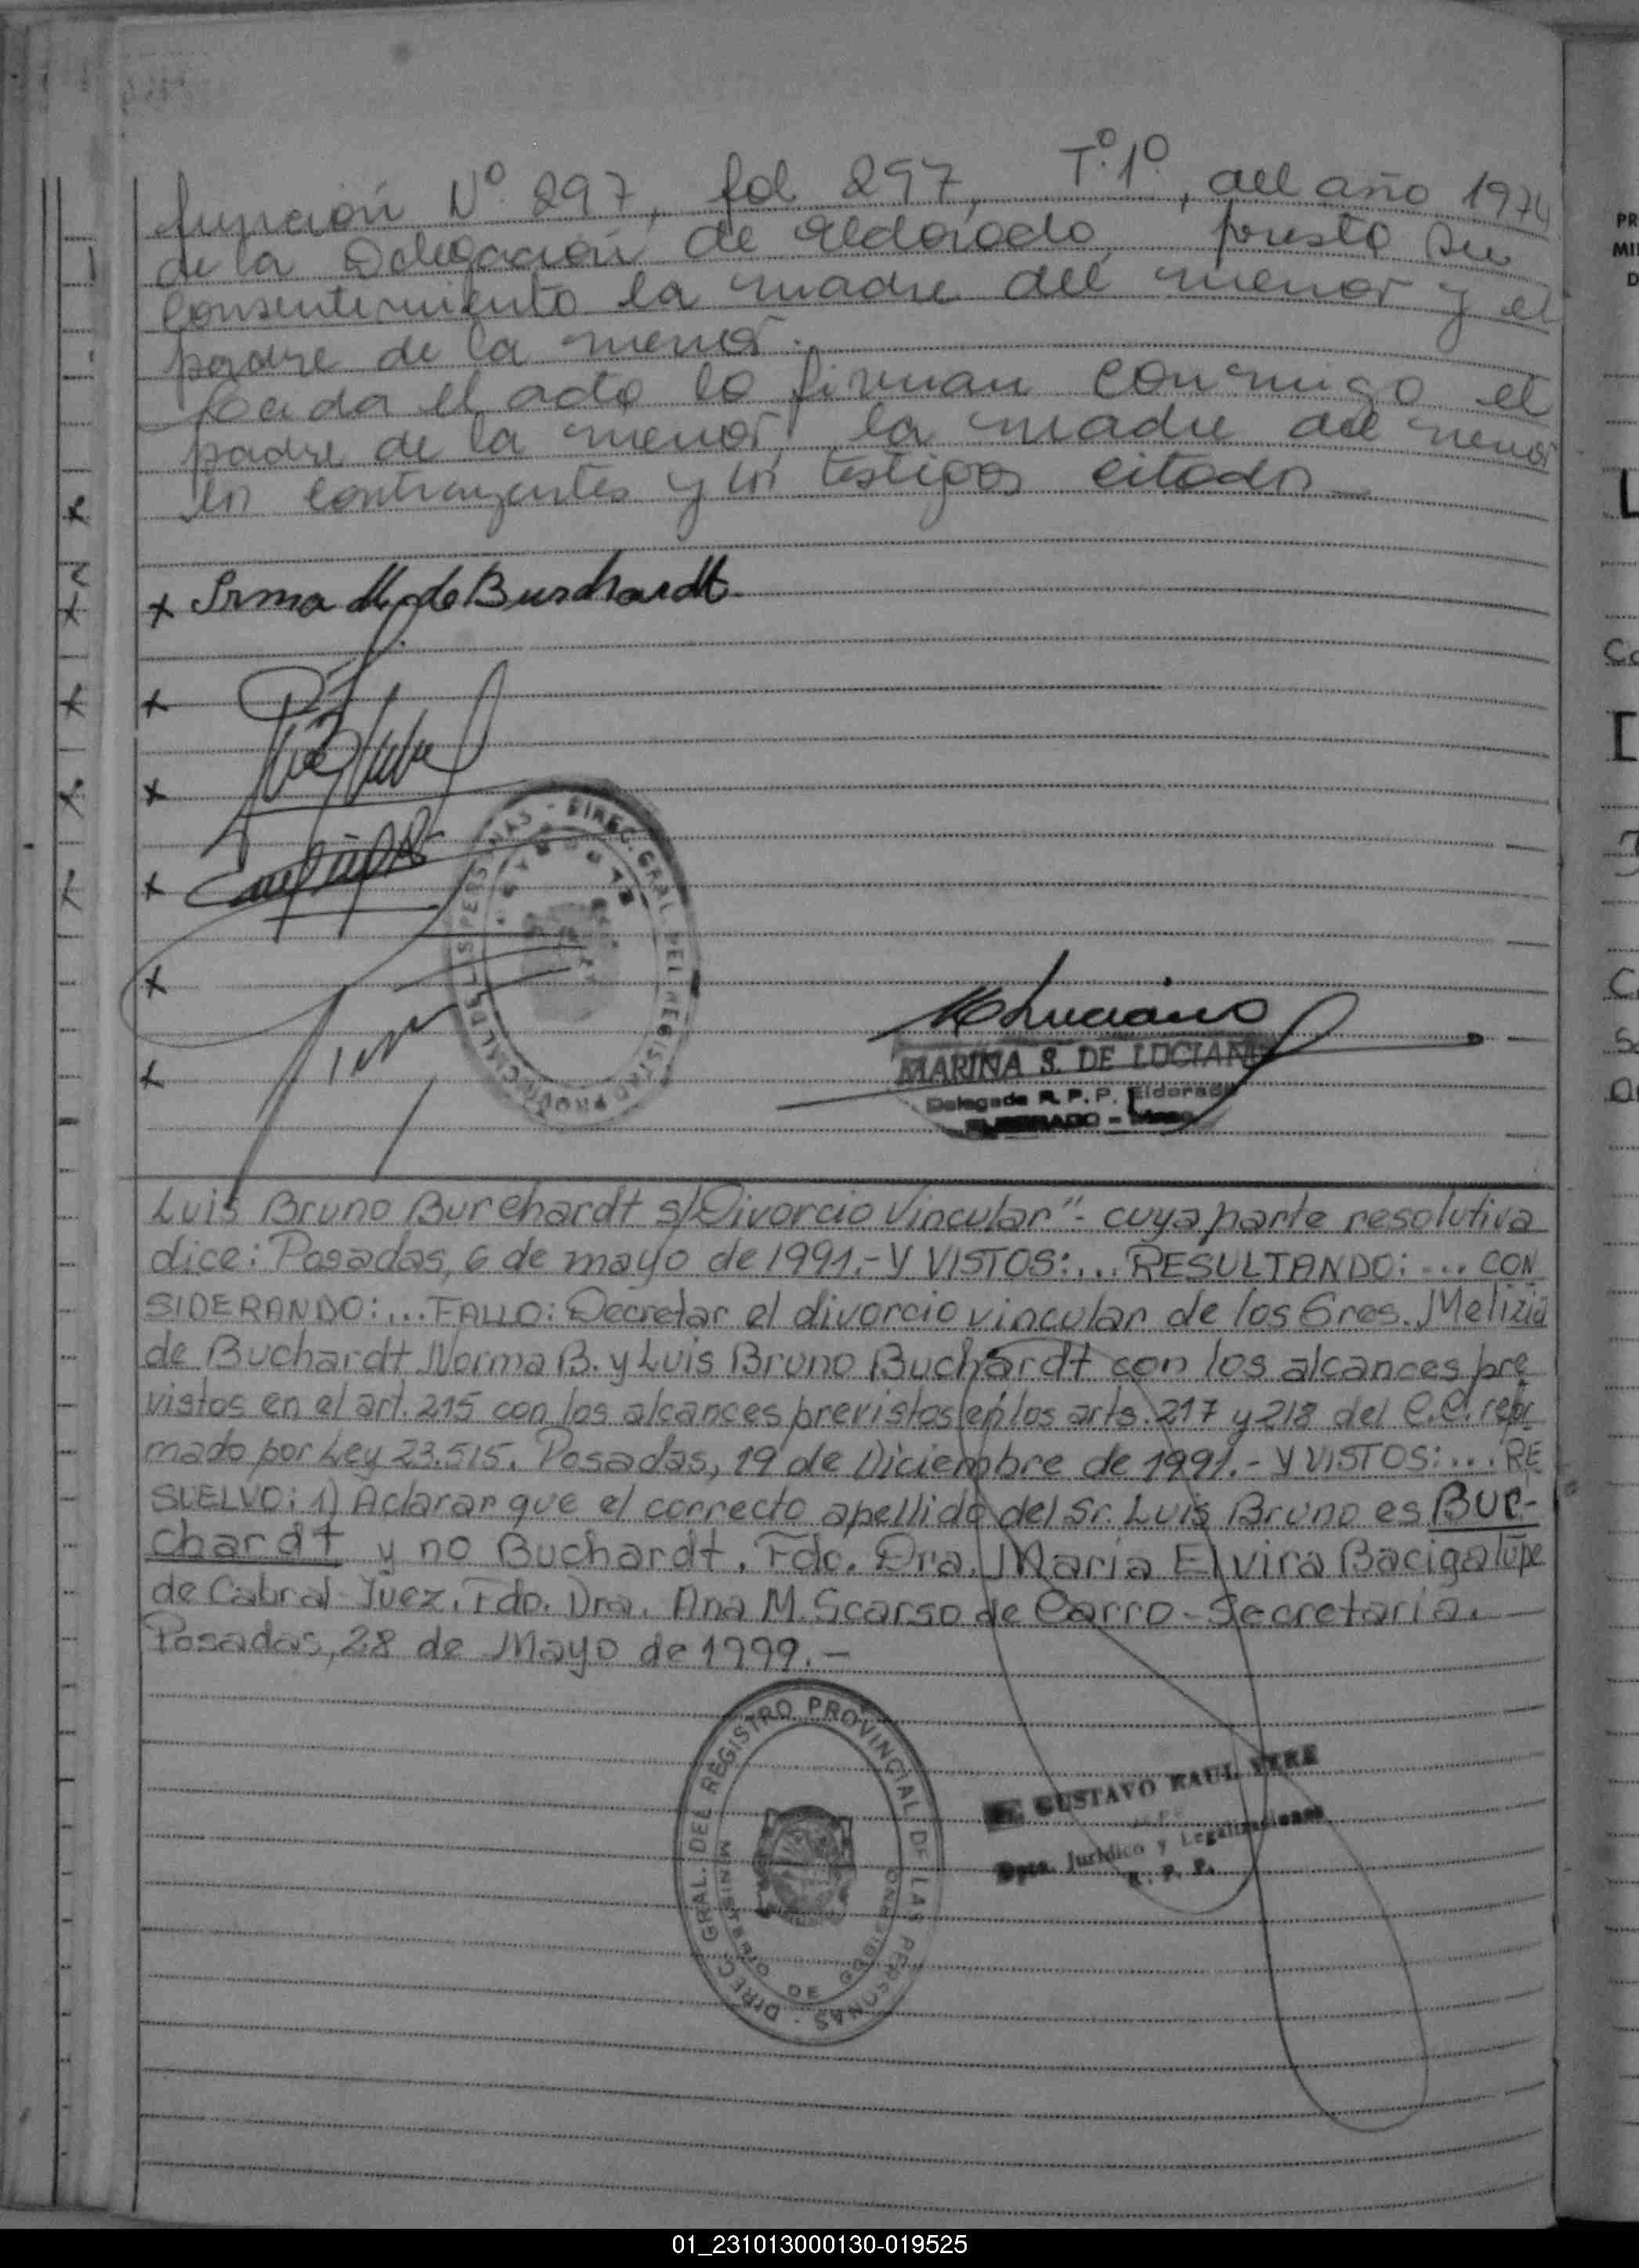 función Nº 297, fol 297, Tº.1º, del año 1974
de la Delegación de eldorado, presto su
consentimiento la madre del menor y el
padre de la menor.
Leida el acta lo firman conmigo el
padre de la menor, la madre del menor
los contrayentes y los testigos citados
x Irma M. de Burchardt
x
x
x
x
x
DIREC. GRAL. DEL REGISTRO PROVINCIAL DE LAS PERSONAS
M Luciano
MARINA S. DE LUCIANO
Delegada R. P. P. Eldorado
ELDORADO - Mnes.
Luis Bruno Burchardt s/Divorcio Vincular".- cuya parte resolutiva
dice: Posadas, 6 de mayo de 1991.- Y VISTOS:... RESULTANDO:... CON
SIDERANDO:... FALLO: Decretar el divorcio vincular de los Sres. Melizia
de Buchardt Norma B. y Luis Bruno Buchardt con los alcances pre
vistos en el art. 215 con los alcances previstos en los arts. 217 y 218 del C.C. refor
mado por Ley 23.515. Posadas, 19 de Diciembre de 1991.- Y VISTOS:... RE
SUELVO: 1) Aclarar que el correcto apellido del Sr. Luis Bruno es Bur-
chardt y no Buchardt. Fdo. Dra. María Elvira Bacigalupe
de Cabral-Juez. Fdo. Dra. Ana M. Scarso de Carro-Secretaria.
Posadas, 28 de Mayo de 1999.-
DIREC. GRAL. DEL REGISTRO PROVINCIAL DE LAS PERSONAS
MINISTERIO DE GOBIERNO
GUSTAVO RAUL
JEFE
Dpto. Jurídico y Legalizaciones
R. P. P.
01_231013000130-019525